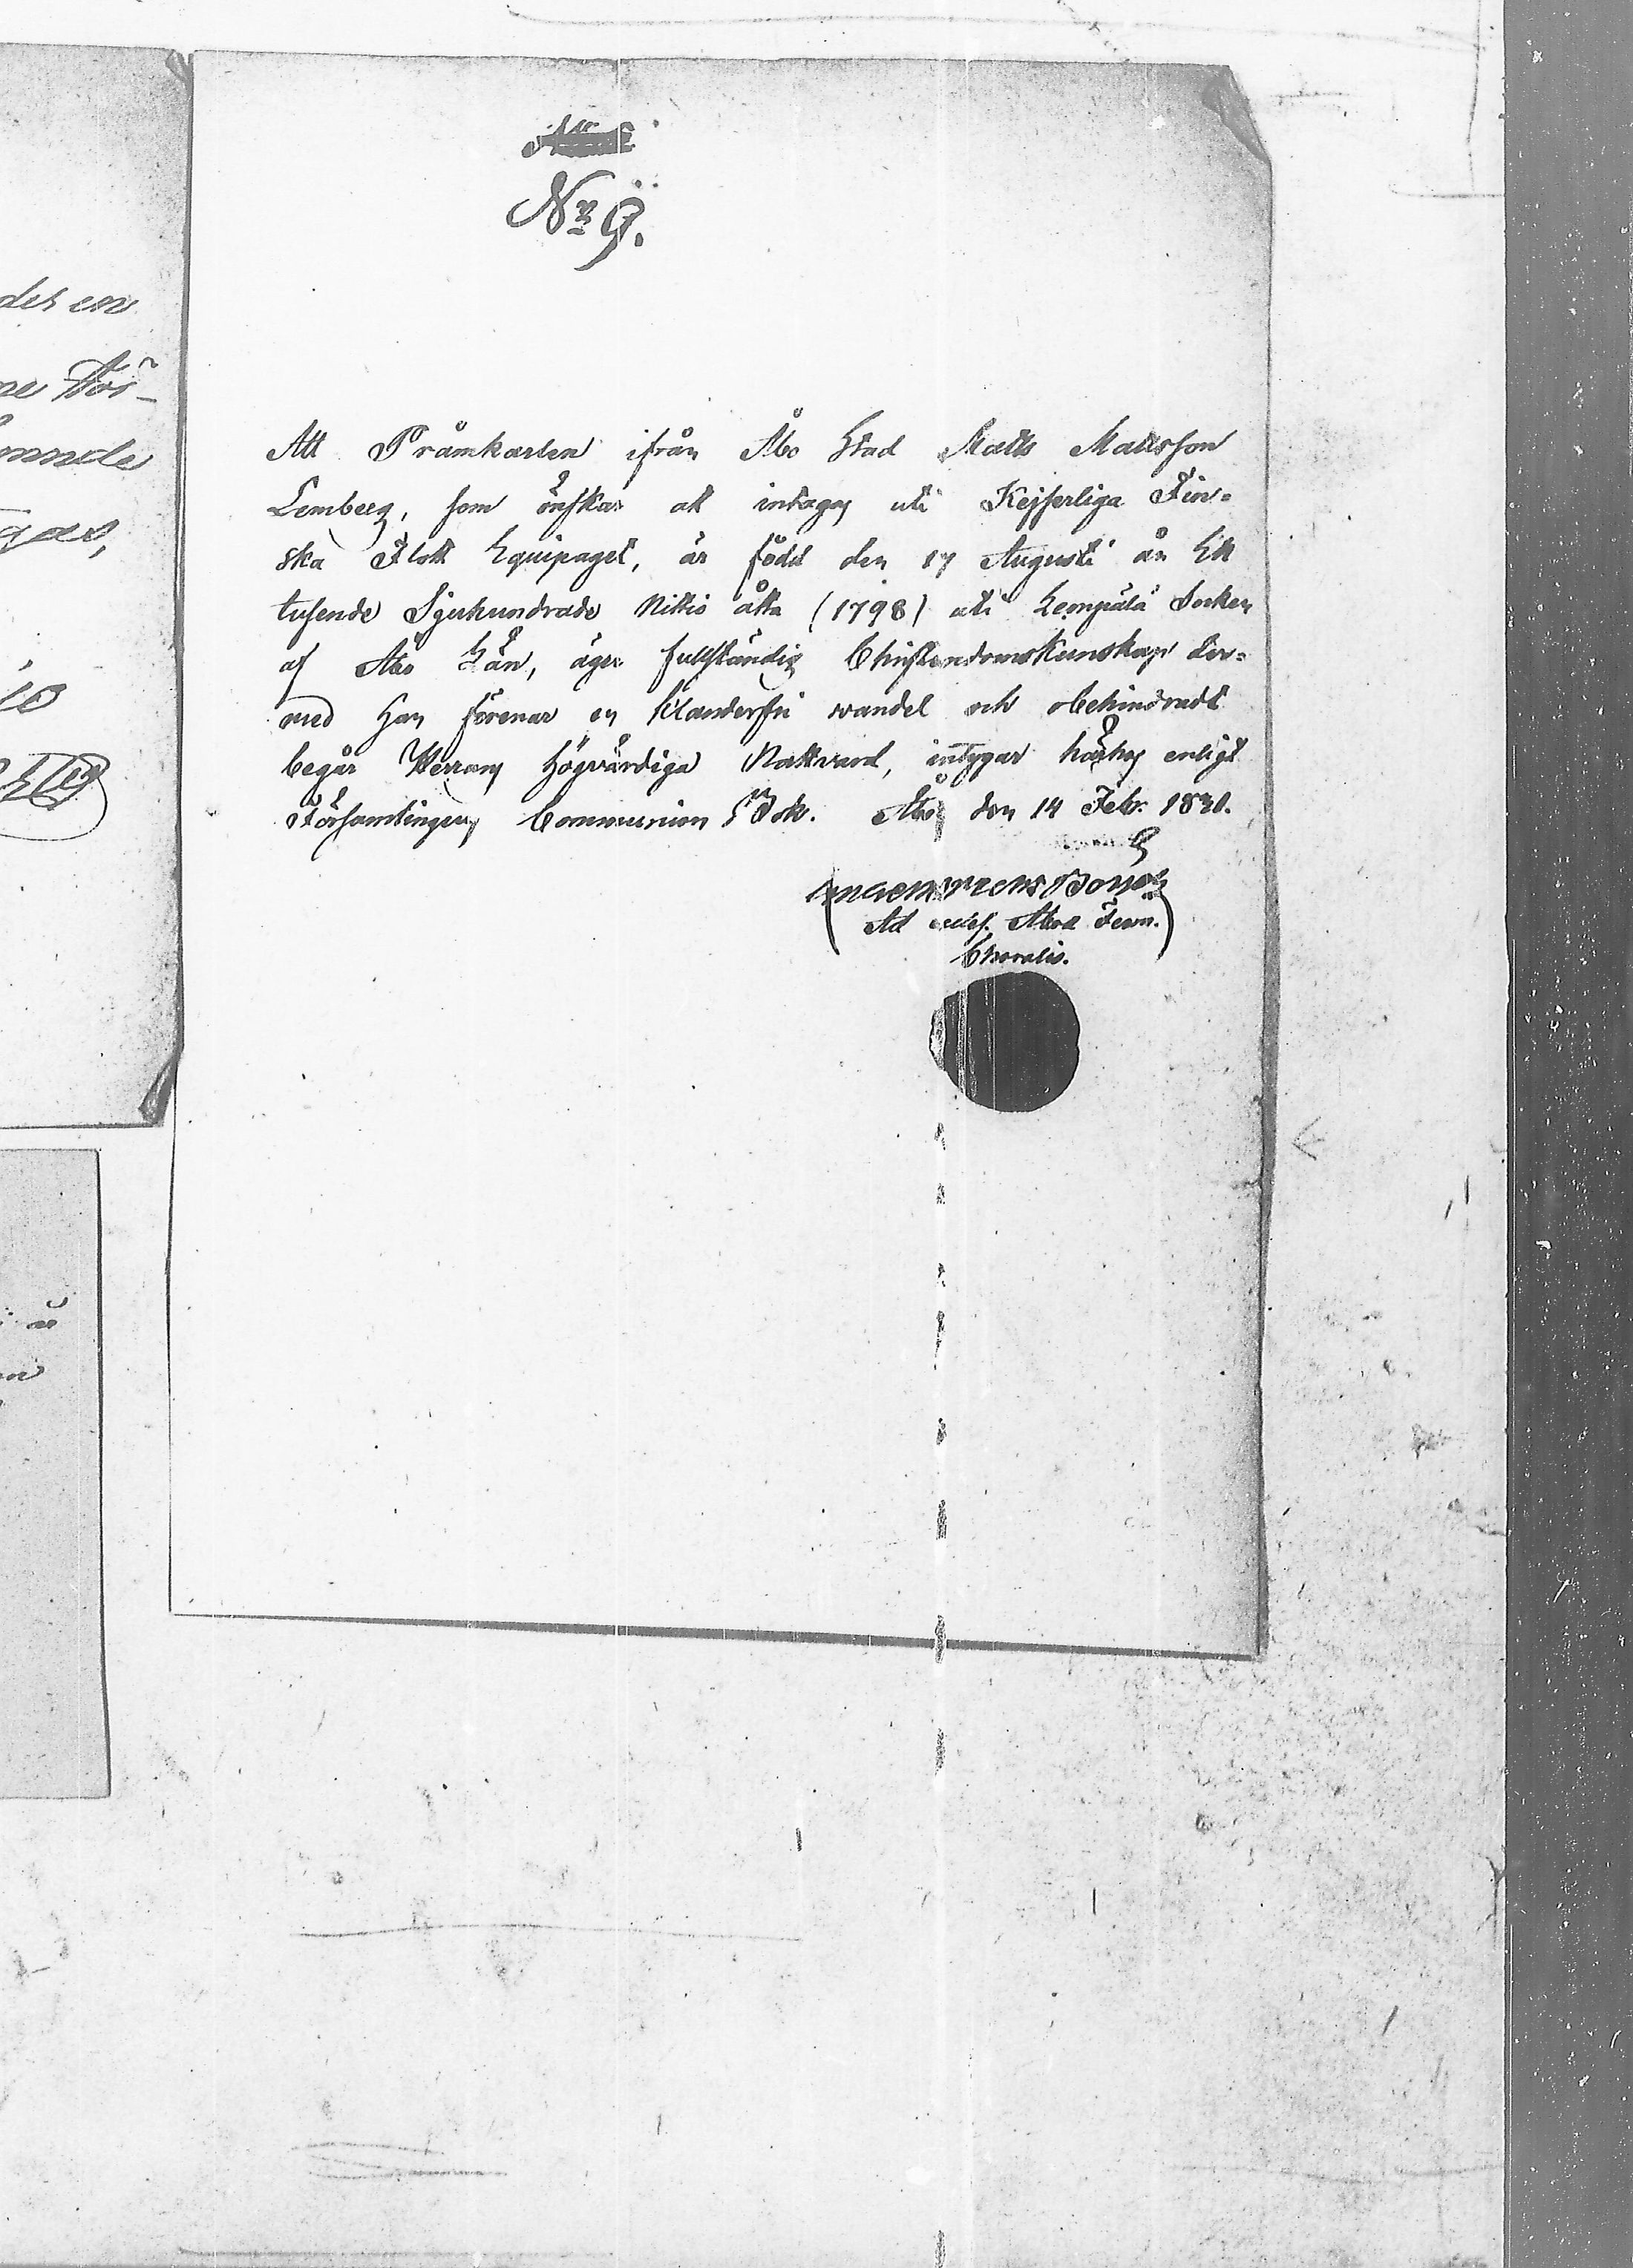 des en
Nr 9.
Att Pråmkarlen ifrån Åbo Stad Matts Mattsson
Lemberg, som önskar att intagas uti Kejserliga Fin-
ska Flott Equipaget, är född den 17 Augusti år Ett
tusende Sjuhundrade Nittio åtta (1798) uti Lempälä Socken
af Åbo Län, äger fullständig Christendomskunskap der-
med Han förenar en klanderfri wandel och obehindradt
begår Herrans Högvärdiga Nattvard, intygar härhos enligt
Församlingens Communion Bok. Åbo den 14 Febr. 1830.
(Ad aedes. Aboa Fenn.)